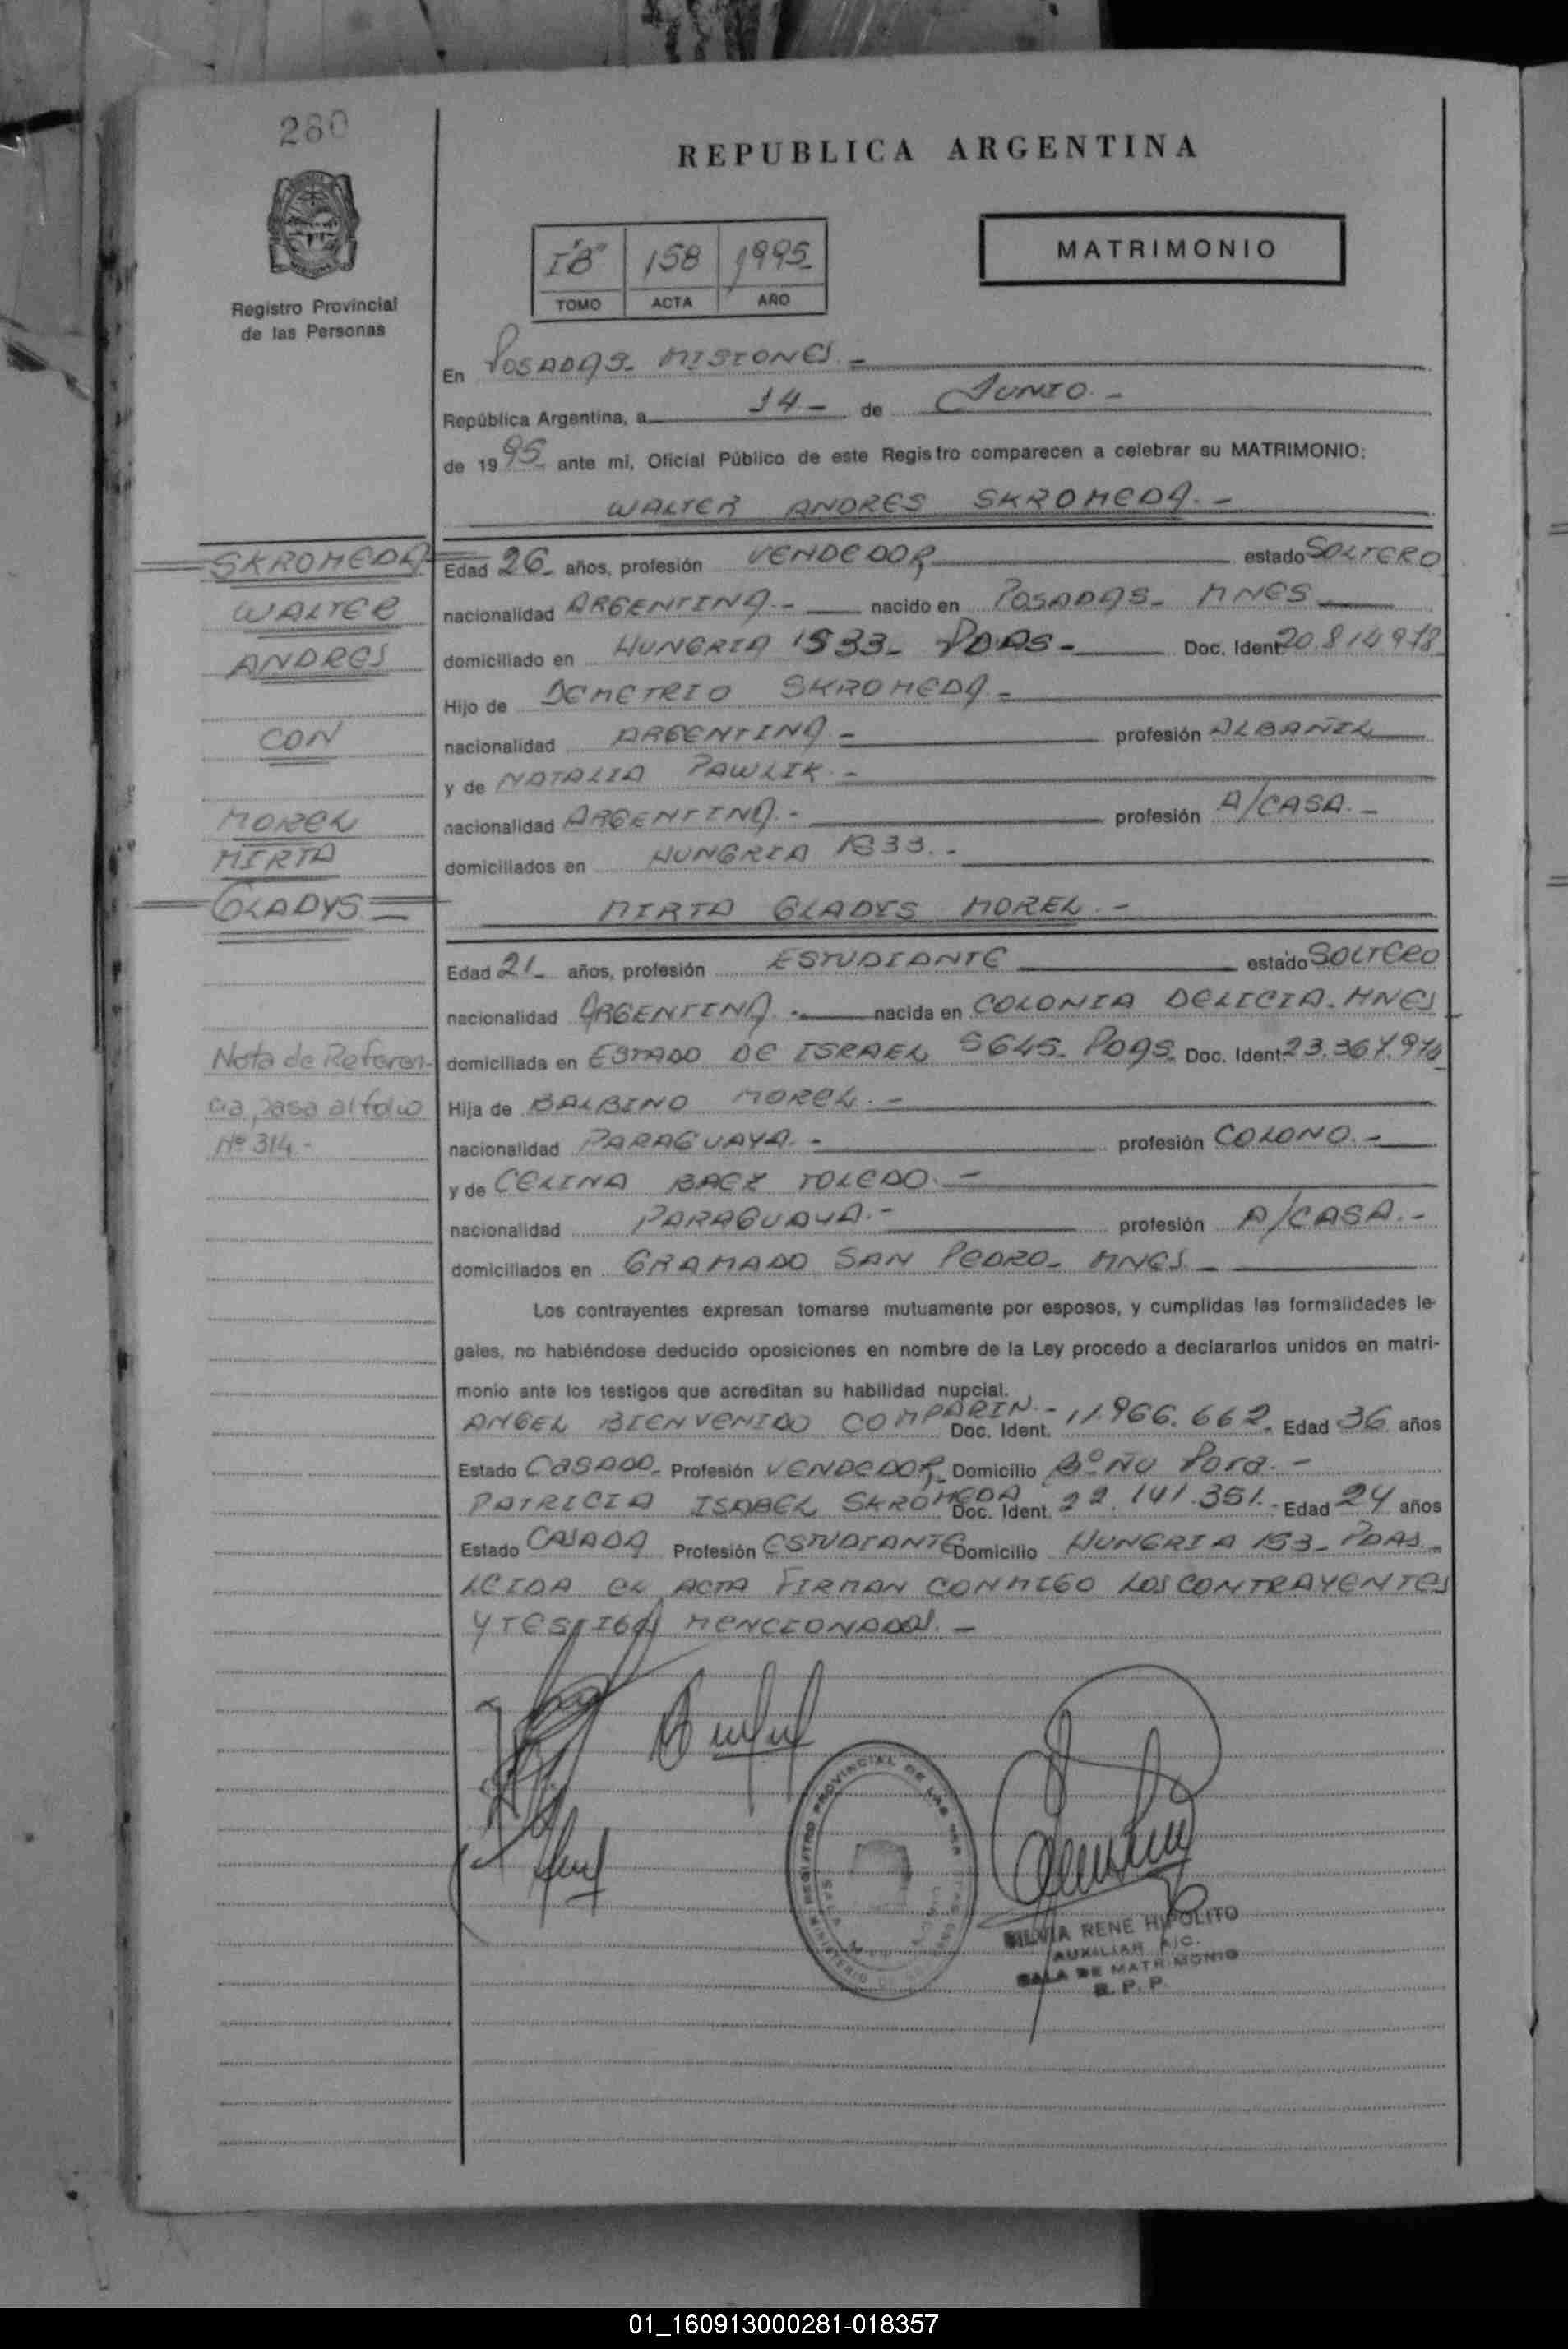 280
REPUBLICA ARGENTINA
MATRIMONIO
I"B" 158 1995
TOMO ACTA AÑO
Registro Provincial
de las Personas
En POSADAS- MISIONES.-
República Argentina, a 14- de JUNIO.-
de 1995- ante mi, Oficial Público de este Registro comparecen a celebrar su MATRIMONIO:
WALTER ANDRES SKROMEDA.-
SKROMEDA
WALTER
ANDRES
CON
MOREL
MIRTA
GLADYS
Edad 26- años, profesión VENDEDOR estado SOLTERO
nacionalidad ARGENTINA.- nacido en POSADAS- MNES
domiciliado en HUNGRIA 1533- PDAS- Doc. Ident 20.814.978
Hijo de DEMETRIO SKROMEDA.-
nacionalidad ARGENTINA.- profesión ALBAÑIL
y de NATALIA PAWLIK.-
nacionalidad ARGENTINA.- profesión A/CASA.-
domiciliados en HUNGRIA 1533.-
MIRTA GLADYS MOREL.-
Edad 21- años, profesión ESTUDIANTE estado SOLTERO
nacionalidad ARGENTINA.- nacida en COLONIA DELICIA. MNES
domiciliada en ESTADO DE ISRAEL 5645- PDAS. Doc. Ident
Hija de BALBINO MOREL.-
nacionalidad PARAGUAYA.- profesión COLONO.-
y de CELINA BAEZ TOLEDO.-
nacionalidad PARAGUAYA.- profesión A/CASA.-
domiciliados en GRAMADO SAN PEDRO- MNES.-
Nota de Referen-
cia pasa al folio
Nº 314.-
Los contrayentes expresan tomarse mutuamente por esposos, y cumplidas las formalidades le-
gales, no habiéndose deducido oposiciones en nombre de la Ley procedo a declararlos unidos en matri-
monio ante los testigos que acreditan su habilidad nupcial.
ANGEL BIENVENIDO COMPARIN.- Doc. Ident. 11.966.662. Edad 36 años
Estado CASADO- Profesión VENDEDOR- Domicilio Bº ÑU Porá.-
PATRICIA ISABEL SKROMEDA Doc. Ident. 22.141.351.- Edad 24 años
Estado CASADA Profesión ESTUDIANTE Domicilio HUNGRIA 153- PDAS-
LEIDA EL ACTA FIRMAN CONMIGO LOS CONTRAYENTES
Y TESTIGOS MENCIONADOS.-
REGISTRO PROVINCIAL DE LAS
MINISTERIO
SILVIA RENE HIPOLITO
AUXILIAR A/C.
SALA DE MATRIMONIO
R. P. P.
01_160913000281-018357